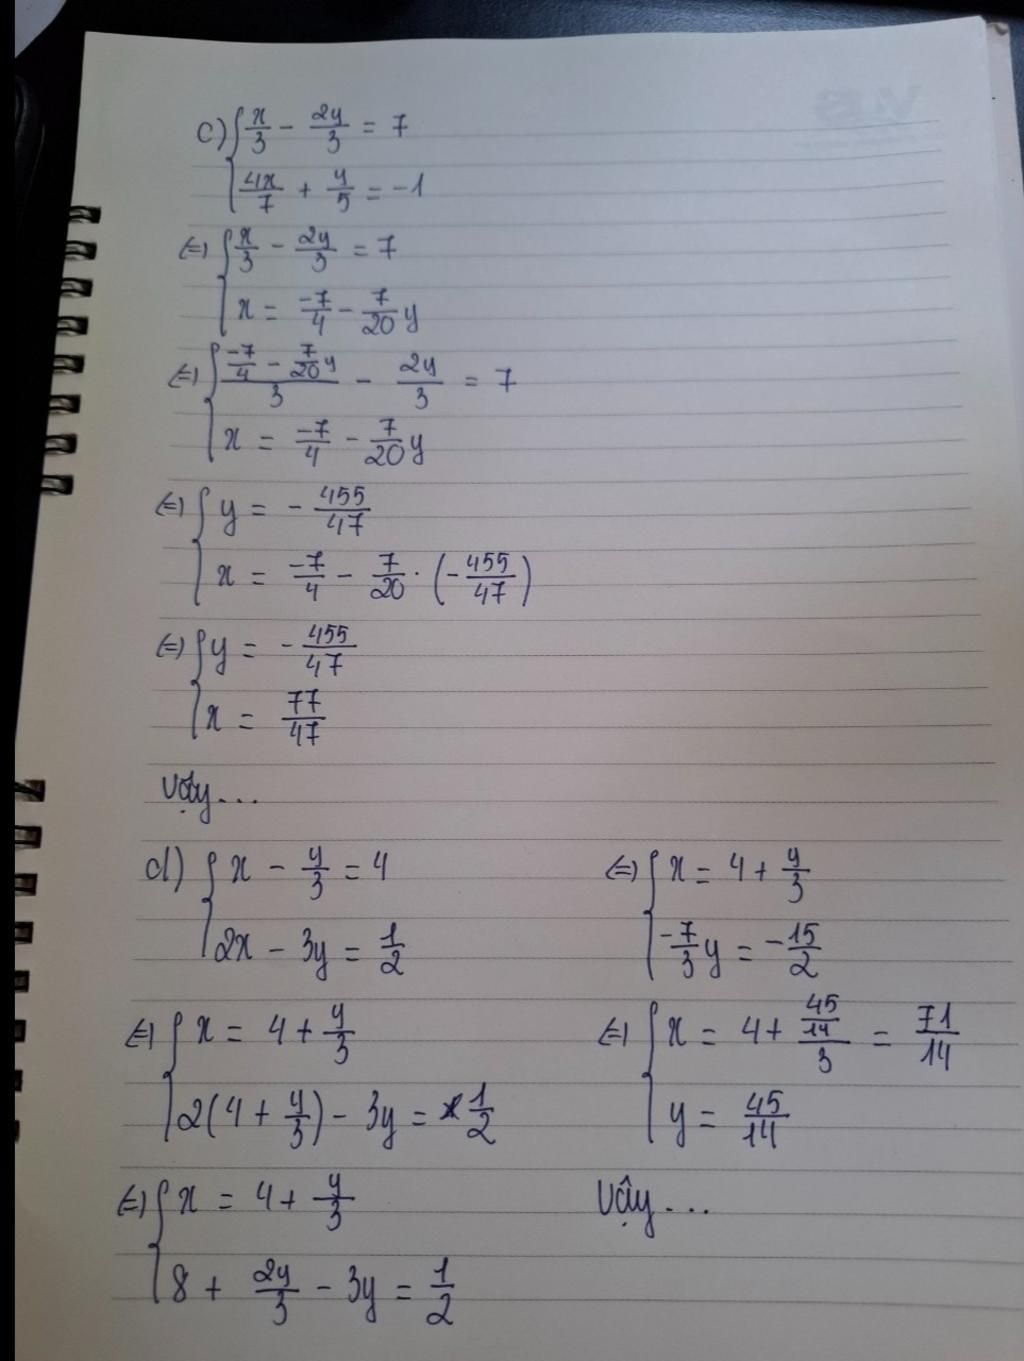 c) { x/3 - 2y/3 = 7
4x/7 + y/5 = -1
(=) { x/3 - 2y/3 = 7
x = -7/4 - 7/20 y
(=) { (-7/4 - 7/20 y)/3 - 2y/3 = 7
x = -7/4 - 7/20 y
(=) { y = - 455/47
x = -7/4 - 7/20 · (- 455/47)
(=) { y = - 455/47
x = 77/47
Vậy...
d) { x - y/3 = 4
2x - 3y = 1/2
(=) { x = 4 + y/3
2(4 + y/3) - 3y = 1/2
(=) { x = 4 + y/3
8 + 2y/3 - 3y = 1/2
(=) { x = 4 + y/3
-7/3 y = - 15/2
(=) { x = 4 + (45/14)/3 = 71/14
y = 45/14
Vậy...